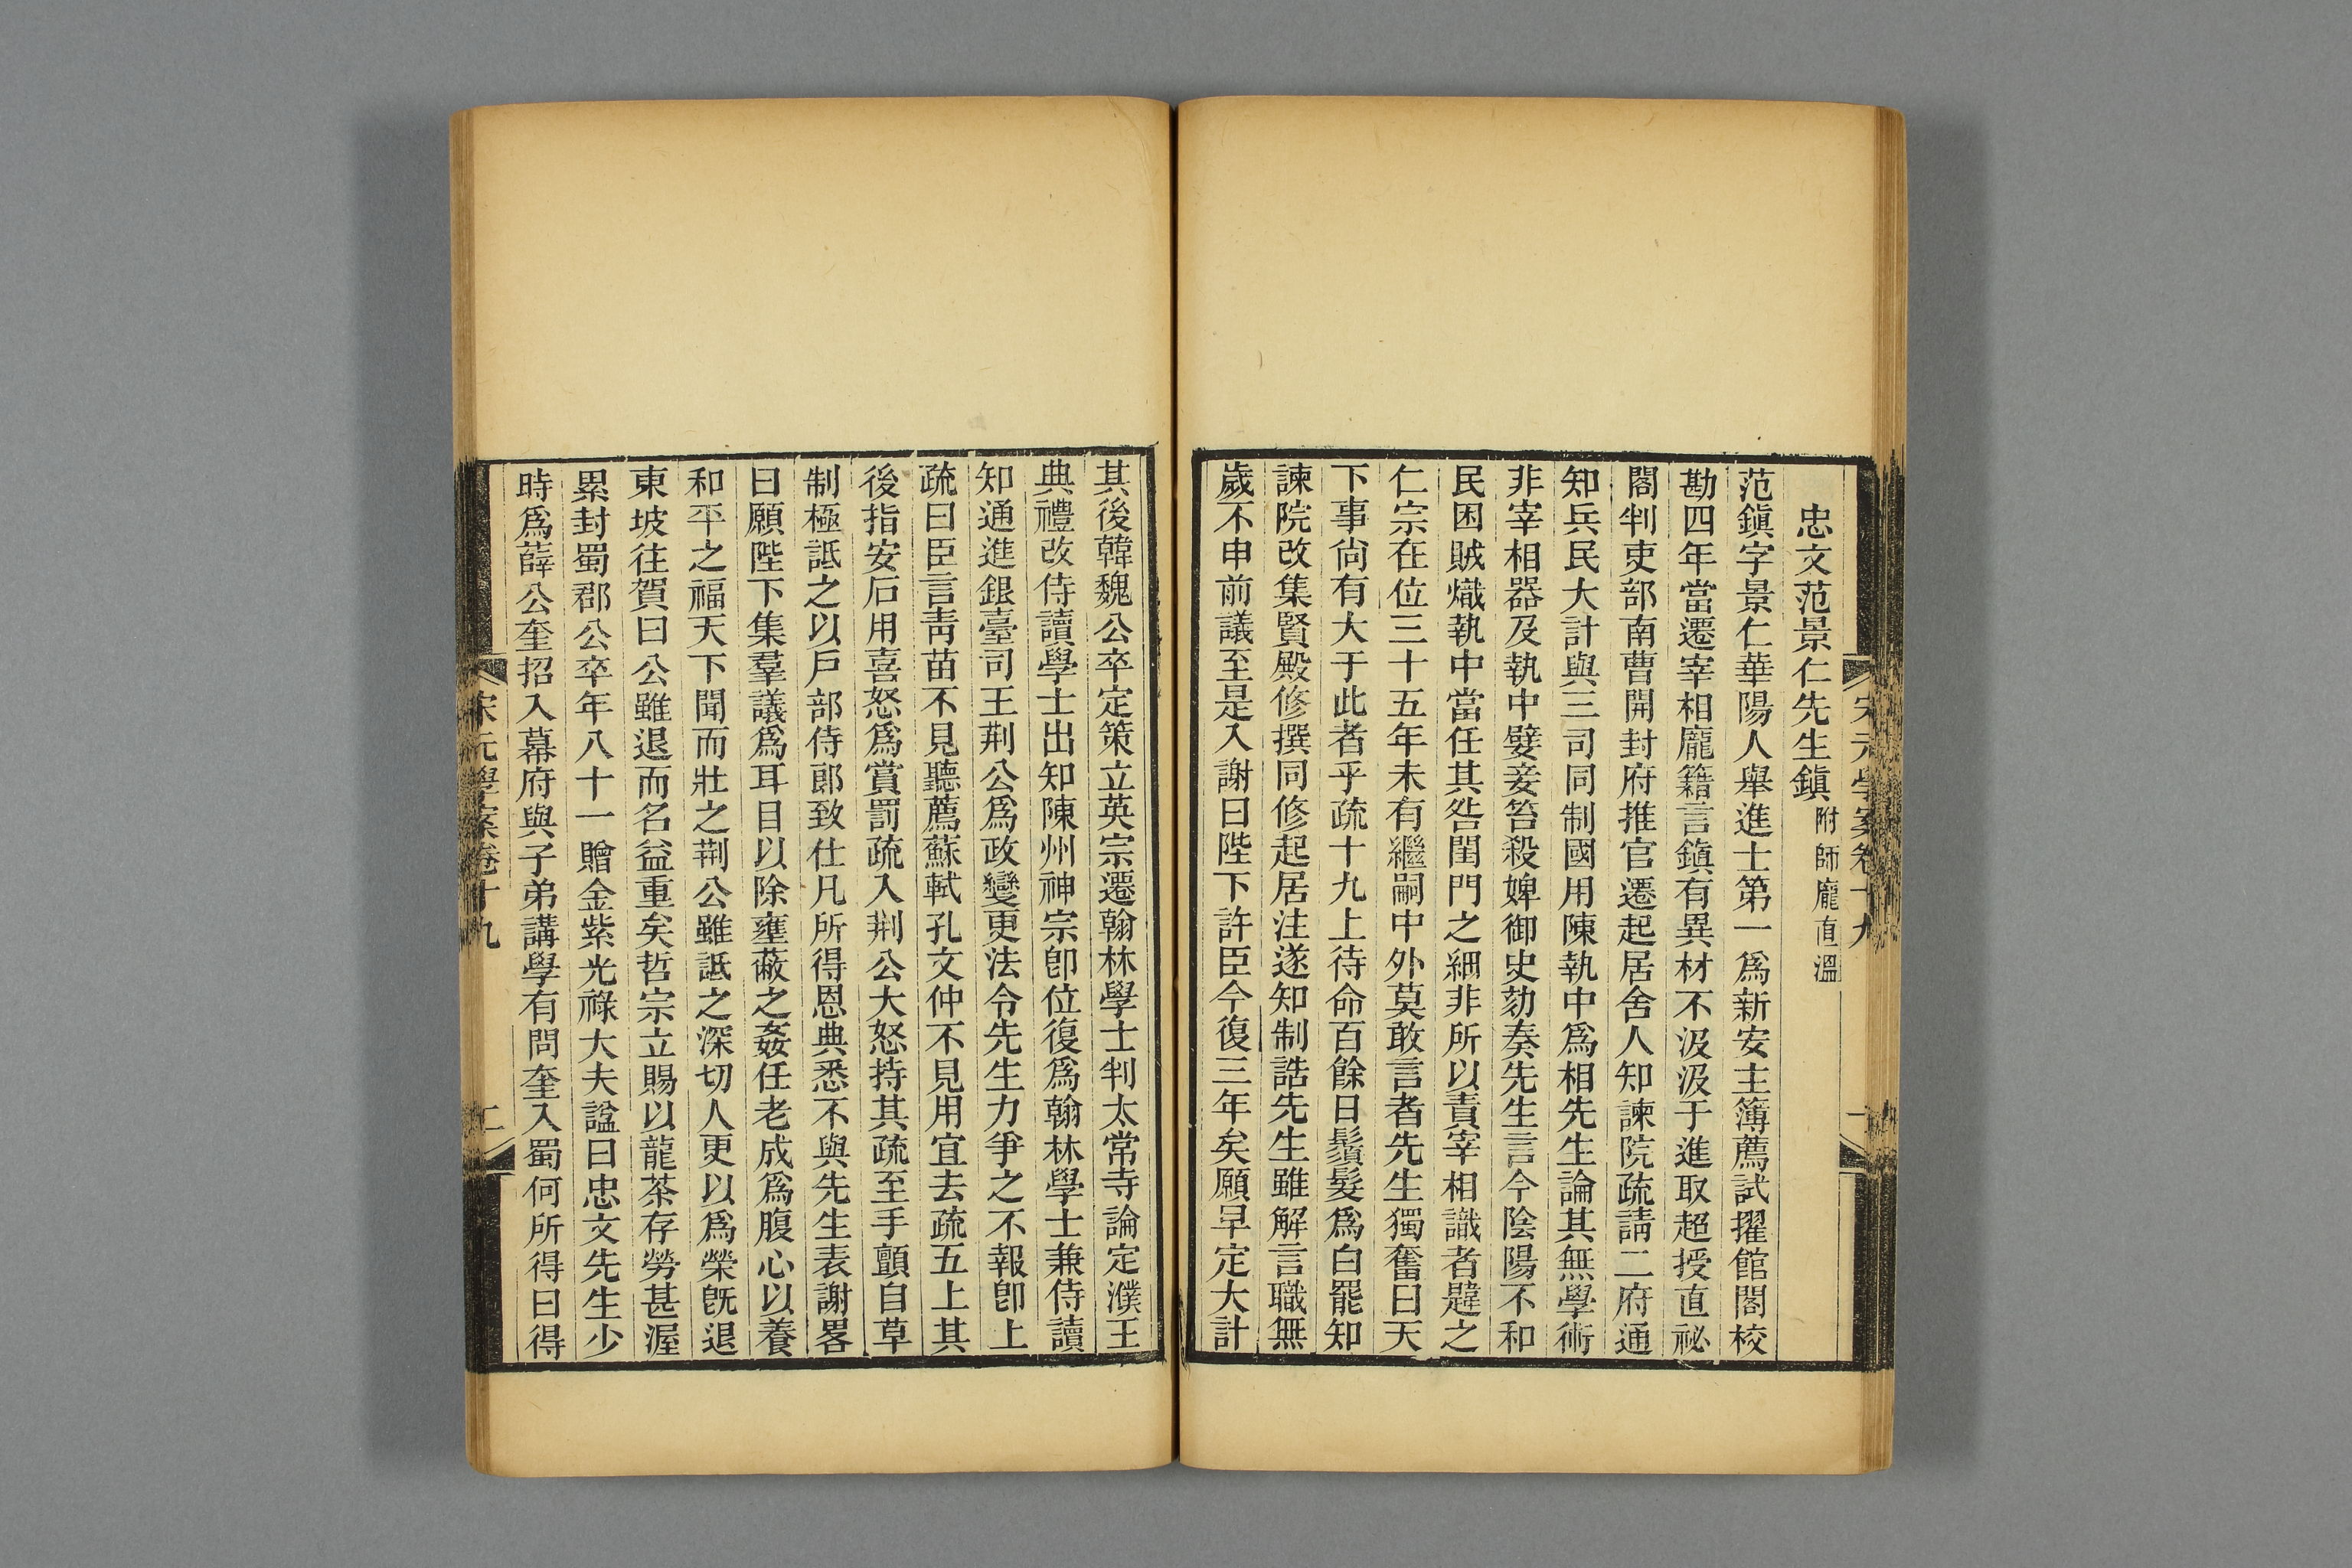 宋元學案卷十九
忠文范景仁先生鎭附師龐直溫
范鎭字景仁華陽人舉進士第一爲新安主簿薦試擢館閣校
勘四年當遷宰相龐籍言鎭有異材不汲汲于進取超授直祕
閣判吏部南曹開封府推官遷起居舍人知諫院疏請二府通
知兵民大計與三司同制國用陳執中爲相先生論其無學術
非宰相器及執中嬖妾笞殺婢御史劾奏先生言今陰陽不和
民困賊熾執中當任其咎閨門之細非所以責宰相識者韙之
仁宗在位三十五年未有繼嗣中外莫敢言者先生獨奮曰天
下事尙有大于此者乎疏十九上待命百餘日鬚髮爲白罷知
諫院改集賢殿修撰同修起居注遂知制誥先生雖解言職無
歲不申前議至是入謝曰陛下許臣今復三年矣願早定大計
其後韓魏公卒定策立英宗遷翰林學士判太常寺論定濮王
典禮改侍讀學士出知陳州神宗卽位復爲翰林學士兼侍讀
知通進銀臺司王荆公爲政變更法令先生力爭之不報卽上
疏曰臣言靑苗不見聽薦蘇軾孔文仲不見用宜去疏五上其
後指安石用喜怒爲賞罰疏入荆公大怒持其疏至手顫自草
制極詆之以戶部侍郎致仕凡所得恩典悉不與先生表謝畧
曰願陛下集羣議爲耳目以除壅蔽之姦任老成爲腹心以養
和平之福天下聞而壯之荆公雖詆之深切人更以爲榮旣退
東坡往賀曰公雖退而名益重矣哲宗立賜以龍茶存勞甚渥
累封蜀郡公卒年八十一贈金紫光祿大夫諡曰忠文先生少
時爲薛公奎招入幕府與子弟講學有問奎入蜀何所得曰得
宋元學案卷十九
二